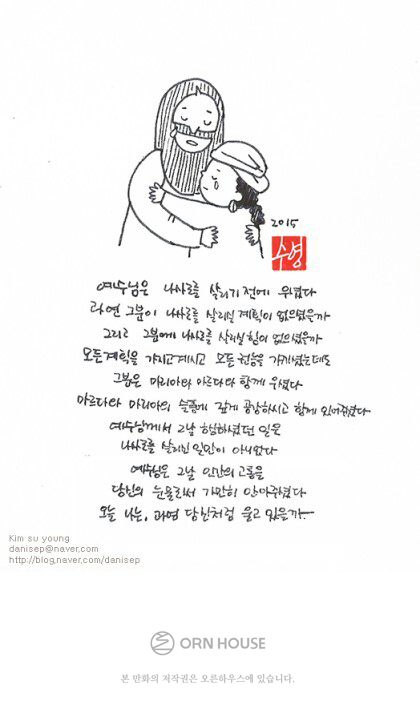 2015
수영
예수님은 나사로를 살리기 전에 우셨다
과연 그분이 나사로를 살리실 계획이 없으셨을까
그리고 그분에게 나사로를 살리실 힘이 없으셨을까
모든 계획을 가지고 계시고 모든 권능을 가지셨는데도
그분은 마리아와 마르다와 함께 우셨다
마르다와 마리아의 슬픔에 깊게 공감하시고 함께 있어주셨다
예수님께서 그날 행하셨던 일은
나사로를 살리신 일만이 아니었다
예수님은 그날 인간의 고통을
당신의 눈물로써 가만히 안아주셨다
오늘 나는, 과연 당신처럼 울고 있을까.
Kim su young
danisep@naver.com
http://blog.naver.com/danisep
ORN HOUSE
본 만화의 저작권은 오른하우스에 있습니다.